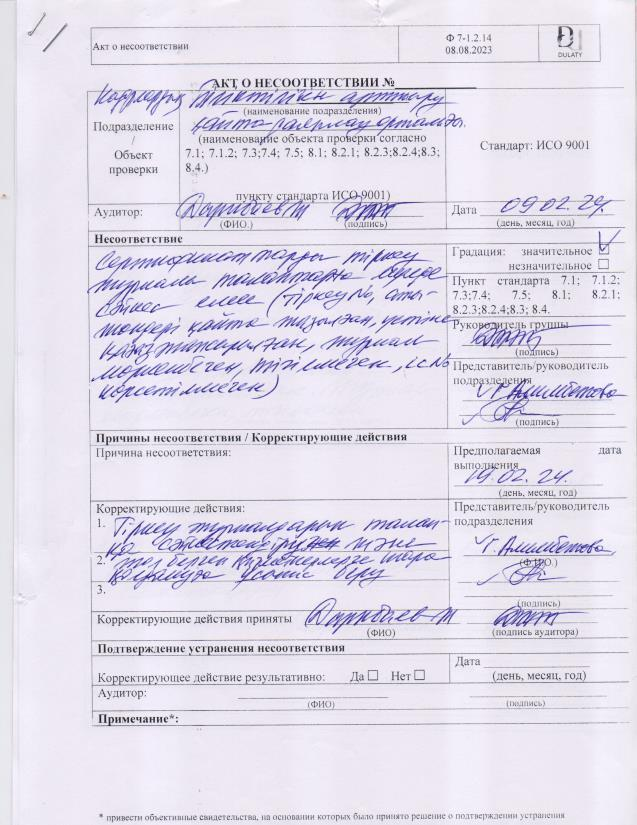 Акт о несоответствии
Ф 7-1.2.14
08.08.2023
DULATY
АКТ О НЕСООТВЕТСТВИИ №
Кадрлардың біліктілігін арттыру
(наименование подразделения)
қайта даярлау орталығы.
Подразделение
/
Объект
проверки
(наименование объекта проверки согласно
7.1; 7.1.2; 7.3;7.4; 7.5; 8.1; 8.2.1; 8.2.3;8.2.4;8.3;
8.4.)
пункту стандарта ИСО 9001)
Стандарт: ИСО 9001
Аудитор:
(ФИО.) (подпись)
Дата 09.02.24.
(день, месяц, год)
Несоответствие
Сертификаттарды тіркеу
журналы талаптарға
сәйкес емес (тіркеу №, аты-
жөндері қайта жазылған, үстіне
қағаз жапсырылған, журнал
мөрленбеген, тігілмеген, іс №
көрсетілмеген)
Градация: значительное ☑
незначительное ☐
Пункт стандарта 7.1; 7.1.2;
7.3;7.4; 7.5; 8.1; 8.2.1;
8.2.3;8.2.4;8.3; 8.4.
Руководитель группы
(подпись)
Представитель/руководитель
подразделения
Г. Алимбетова
(подпись)
Причины несоответствия / Корректирующие действия
Причина несоответствия:
Предполагаемая дата
выполнения
19.02.24.
(день, месяц, год)
Корректирующие действия:
1. Тіркеу журналдарын талап-
қа сәйкестендіру және
2.
3.
Представитель/руководитель
подразделения
Г. Алимбетова,
(Ф.И.О.)
(подпись)
Корректирующие действия приняты
(ФИО) (подпись аудитора)
Подтверждение устранения несоответствия
Корректирующее действие результативно: Да ☐ Нет ☐
Дата
(день, месяц, год)
Аудитор:
(ФИО) (подпись)
Примечание*:
* привести объективные свидетельства, на основании которых было принято решение о подтверждении устранения